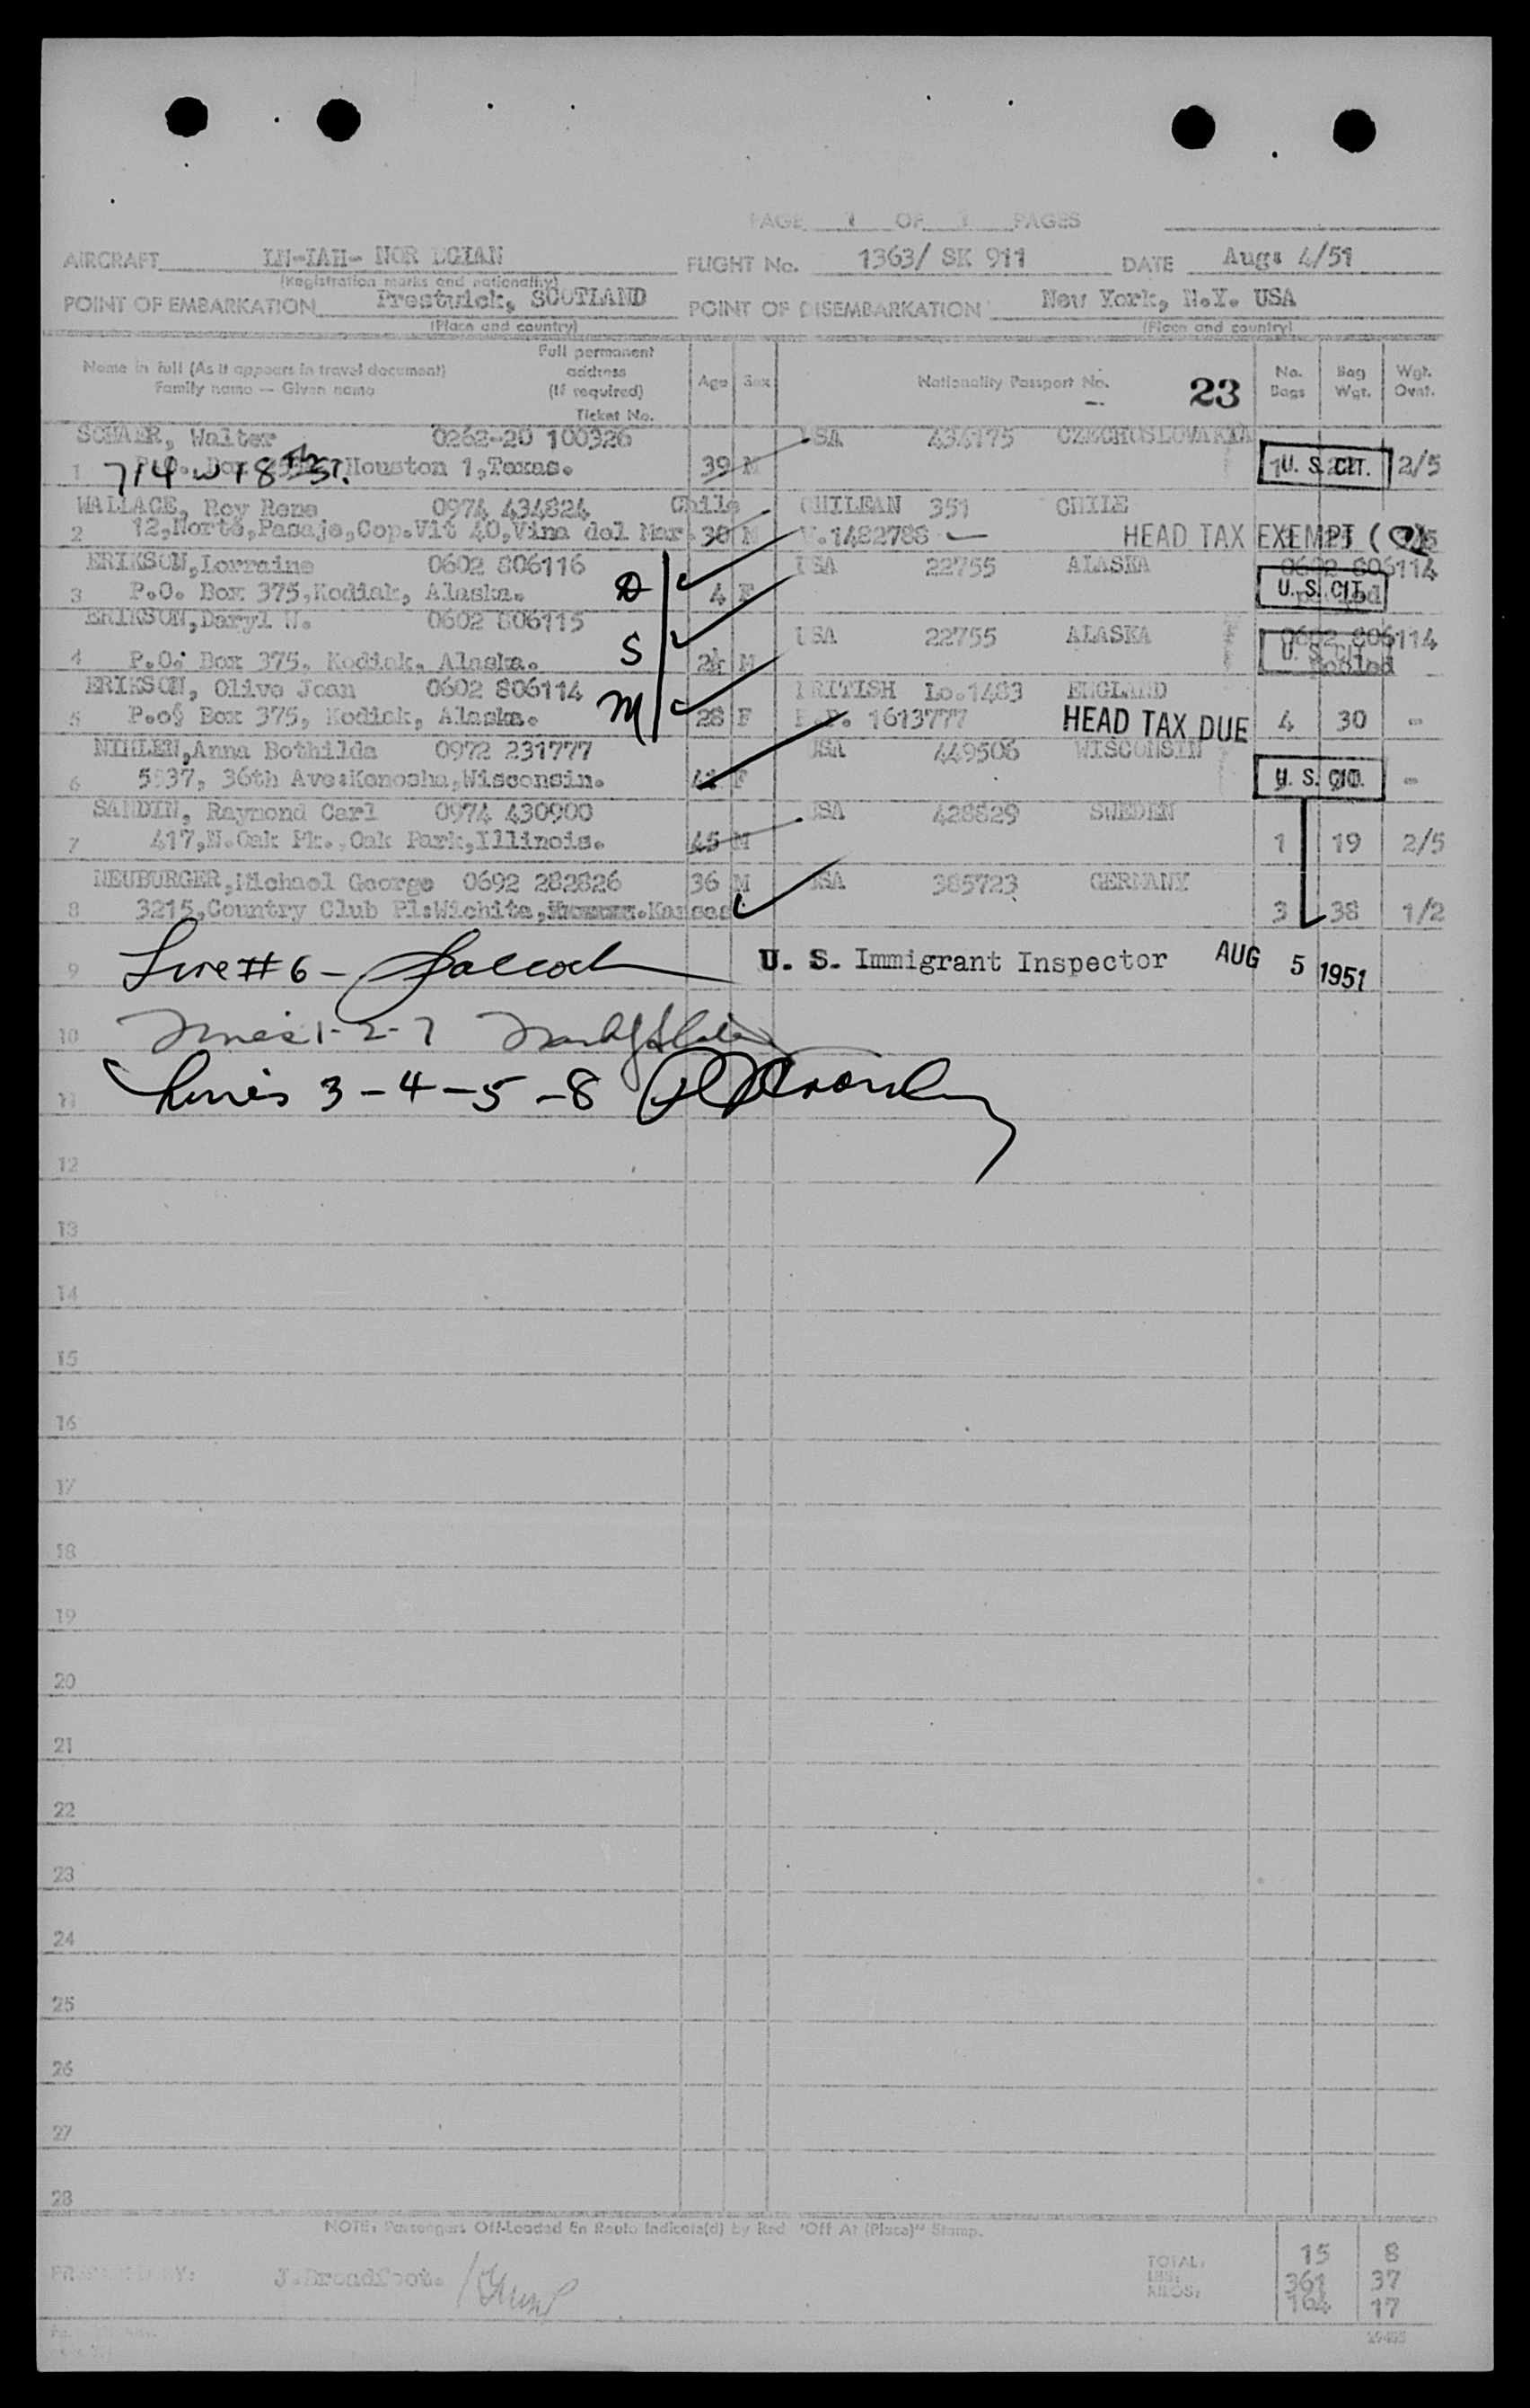 PAGE 1 OF 1 PAGES
AIRCRAFT LN-IAH- NOR EGIAN FLIGHT No. 1363/ SK 911 DATE Aug: 4/51
(Registration marks and nationality)
POINT OF EMBARKATION Prestwick, SCOTLAND POINT OF DISEMBARKATION New York, N.Y. USA
(Place and country) (Place and country)
Name in full (As it appears in travel document) Family name — Given name
Full permanent address (If required) Ticket No.
Age Sex Nationality Passport No. 23 No. Bags Bag Wgt. Wgt. Ovnt.
SCHAER, Walter 0262-20 100326 USA 434175 CZECHOSLOVAKIA
1 714 W 18th ST. Houston 1, Texas. 39 M U. S. CIT. 2/5
WALLACE, Roy Rene 0974 434824 Chile CHILEAN 351 CHILE
2 12,Norte,Pasaje,Cop.Vit 40,Vina del Mar. 30 M V.1482788 HEAD TAX EXEMPT
ERIKSON,Lorraine 0602 806116 USA 22755 ALASKA 0602 806114
3 P.O. Box 375,Kodiak, Alaska. D 4 F U. S. CIT.
ERIKSON,Daryl W. 0602 806115 USA 22755 ALASKA 0602 806114
4 P.O. Box 375, Kodiak, Alaska. S 2½ M U. S. CIT. pooled
ERIKSON, Olive Joan 0602 806114 BRITISH Lo.1483 ENGLAND
5 P.o. Box 375, Kodiak, Alaska. M 28 F P.P. 1613777 HEAD TAX DUE 4 30 -
NIHLEN,Anna Bothilda 0972 231777 USA 449506 WISCONSIN
6 5537, 36th Ave:Kenosha,Wisconsin. 41 F U. S. CIT. -
SANDIN, Raymond Carl 0974 430900 USA 428829 SWEDEN
7 417,N.Oak Pk.,Oak Park,Illinois. 45 M 1 19 2/5
NEUBURGER,Michael George 0692 282826 36 M USA 385723 GERMANY
8 3215,Country Club Pl:Wichita, Kansas 3 38 1/2
9 Line # 6 - U. S. Immigrant Inspector AUG 5 1951
10 Lines 1-2-7
11 Lines 3-4-5-8
12
13
14
15
16
17
18
19
20
21
22
23
24
25
26
27
28
NOTE: Passengers Off-Loaded En Route Indicate(d) by Red "Off At (Place)" Stamp.
PREPARED BY: J.Broadfoot. TOTAL: 15 8
LBS: 361 37
KILOS: 164 17